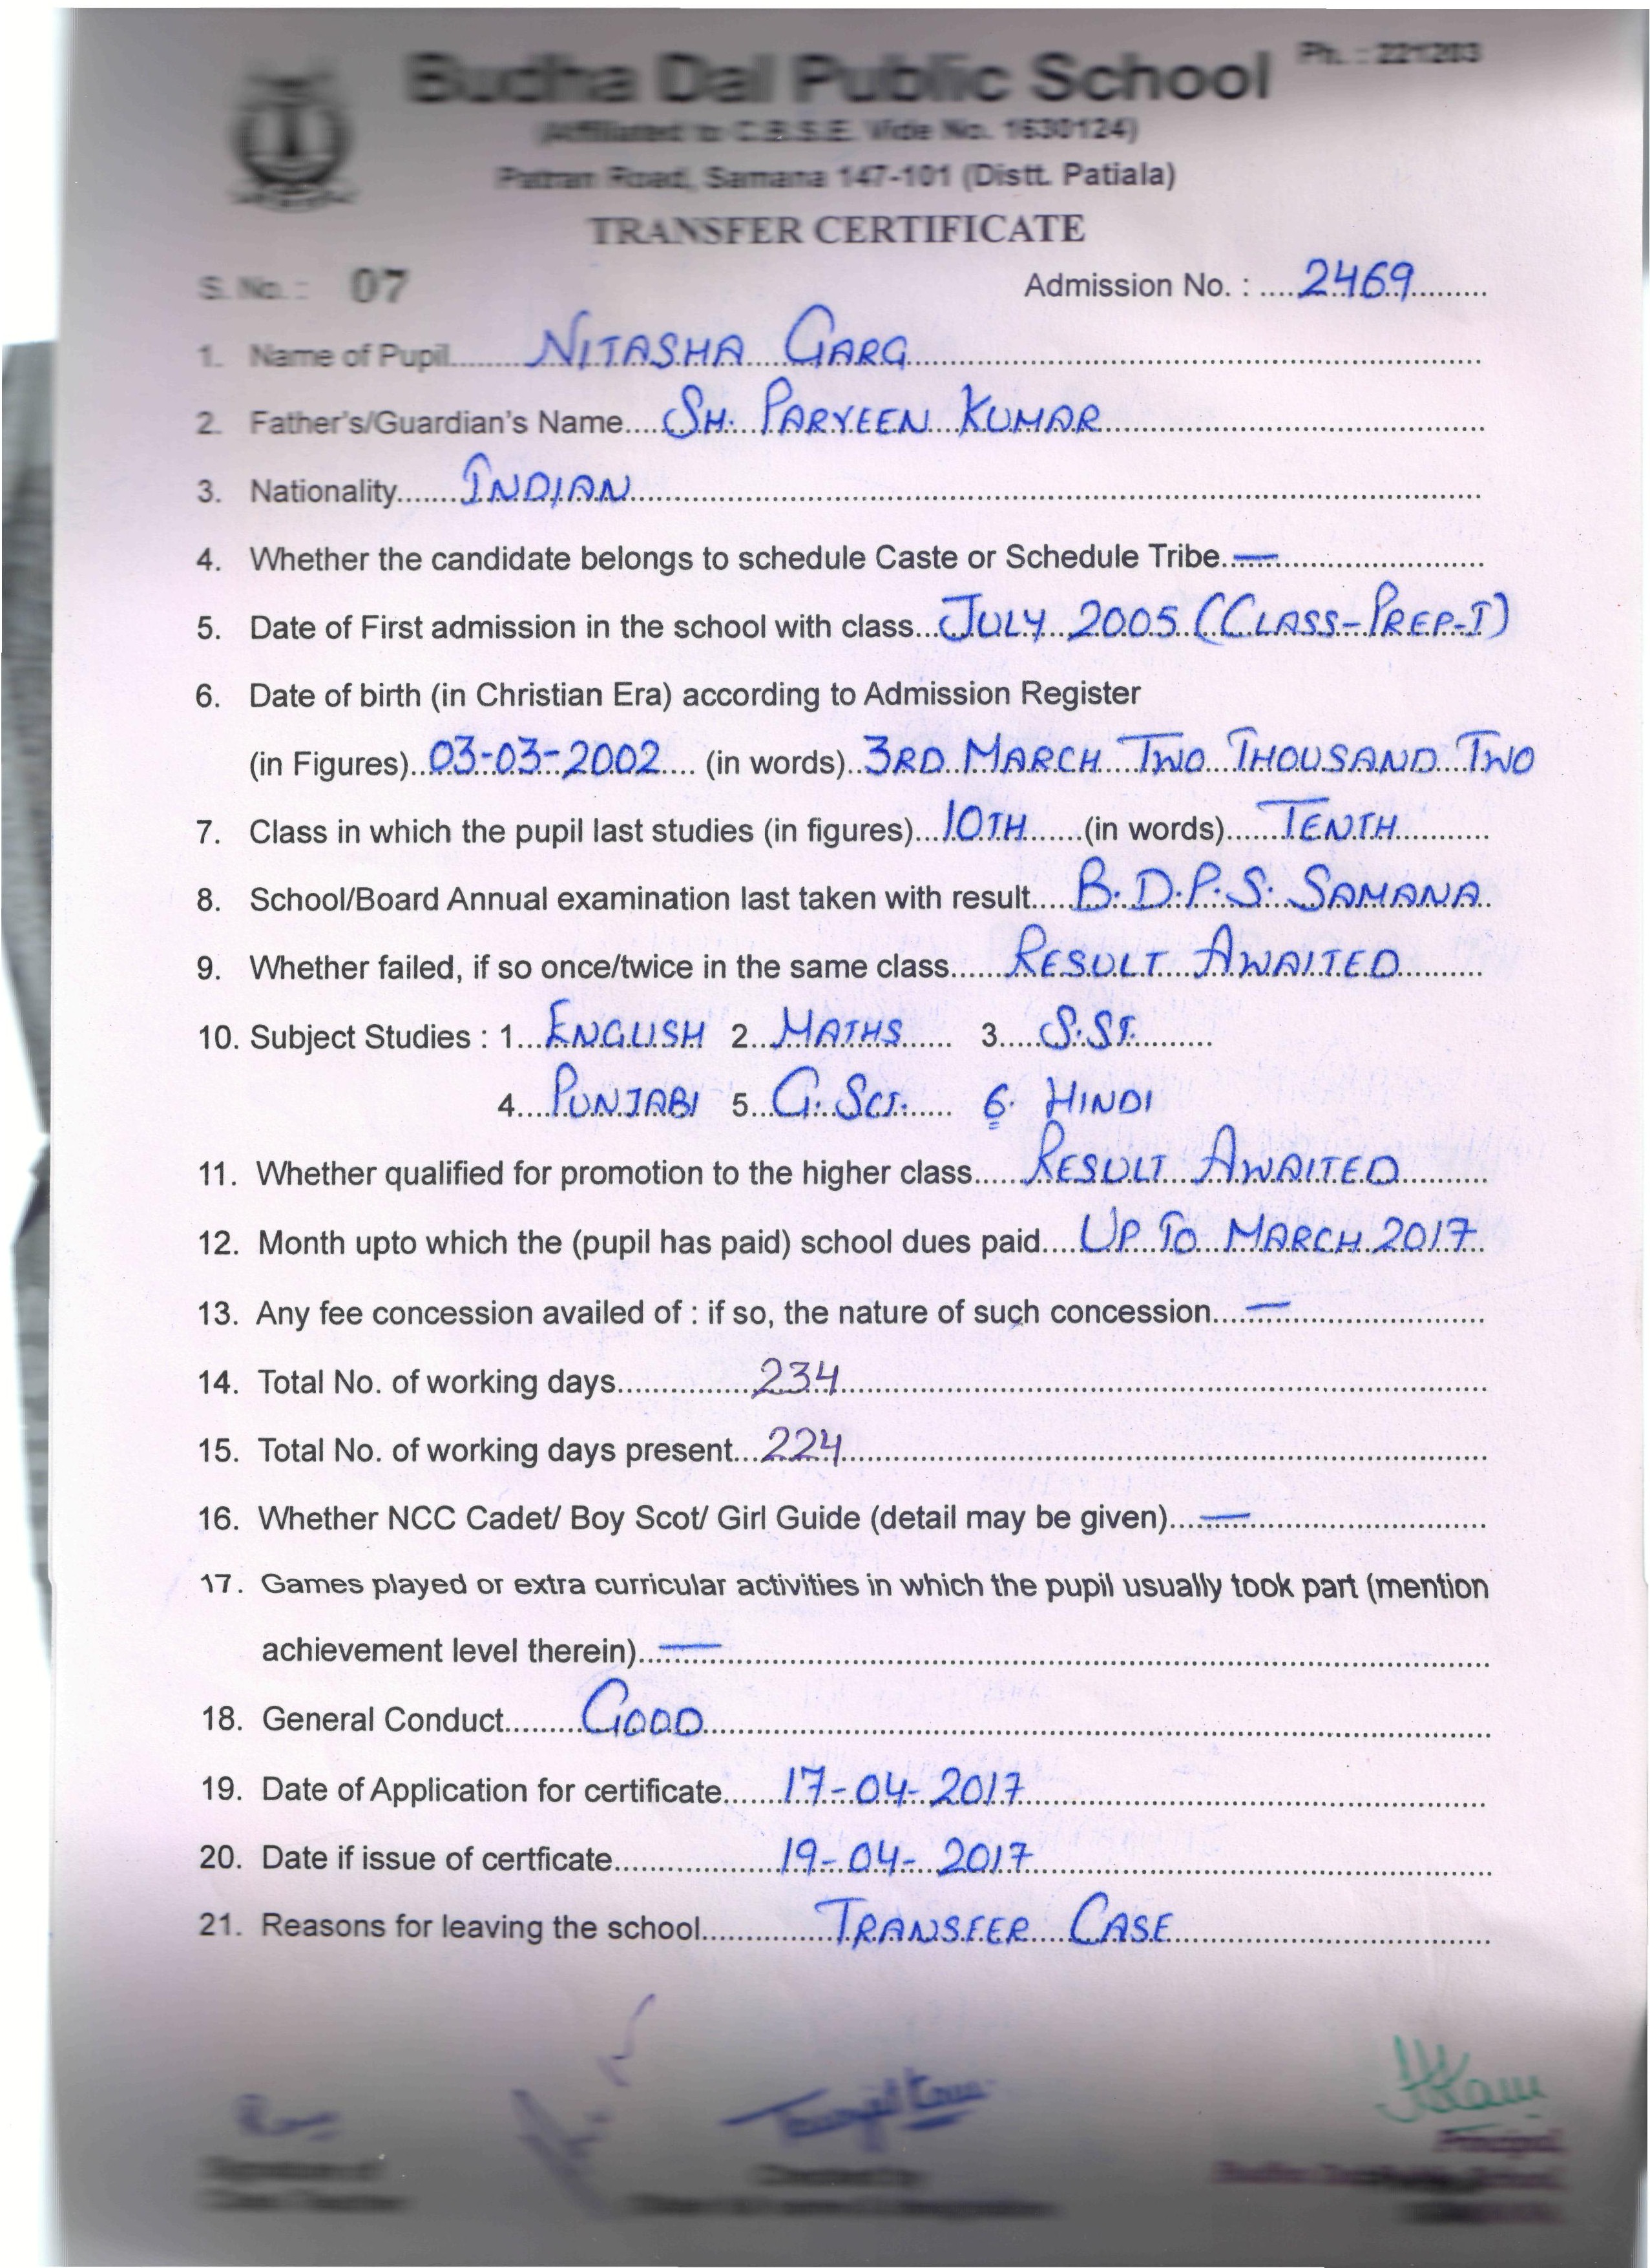 Budha Dal Public School
Ph. : 221203
(Affiliated to C.B.S.E. Vide No. 1630124)
Patran Road, Samana 147-101 (Distt. Patiala)
TRANSFER CERTIFICATE
S. No. : 07
Admission No. : ....2469........
1. Name of Pupil........NITASHA GARG........
2. Father's/Guardian's Name....SH. PARVEEN KUMAR........
3. Nationality.......INDIAN........
4. Whether the candidate belongs to schedule Caste or Schedule Tribe.—........
5. Date of First admission in the school with class...JULY 2005 (CLASS-PREP-I)
6. Date of birth (in Christian Era) according to Admission Register
(in Figures)..03-03-2002.... (in words)..3RD MARCH TWO THOUSAND TWO
7. Class in which the pupil last studies (in figures)...10TH......(in words)......TENTH........
8. School/Board Annual examination last taken with result.....B.D.P.S. SAMANA.
9. Whether failed, if so once/twice in the same class......RESULT AWAITED........
10. Subject Studies : 1...ENGLISH 2..MATHS...... 3.....S.ST.........
4....PUNJABI 5...G. SCI....... 6. HINDI
11. Whether qualified for promotion to the higher class.....RESULT AWAITED........
12. Month upto which the (pupil has paid) school dues paid....UP TO MARCH 2017.
13. Any fee concession availed of : if so, the nature of such concession....—........
14. Total No. of working days...............234........
15. Total No. of working days present...224........
16. Whether NCC Cadet/ Boy Scot/ Girl Guide (detail may be given)....—........
17. Games played or extra curricular activities in which the pupil usually took part (mention
achievement level therein)...—........
18. General Conduct........GOOD........
19. Date of Application for certificate.......17-04-2017........
20. Date if issue of certficate.................19-04-2017........
21. Reasons for leaving the school.............TRANSFER CASE........
Signature of
Class Teacher
Principal,
Budha Dal Public School,